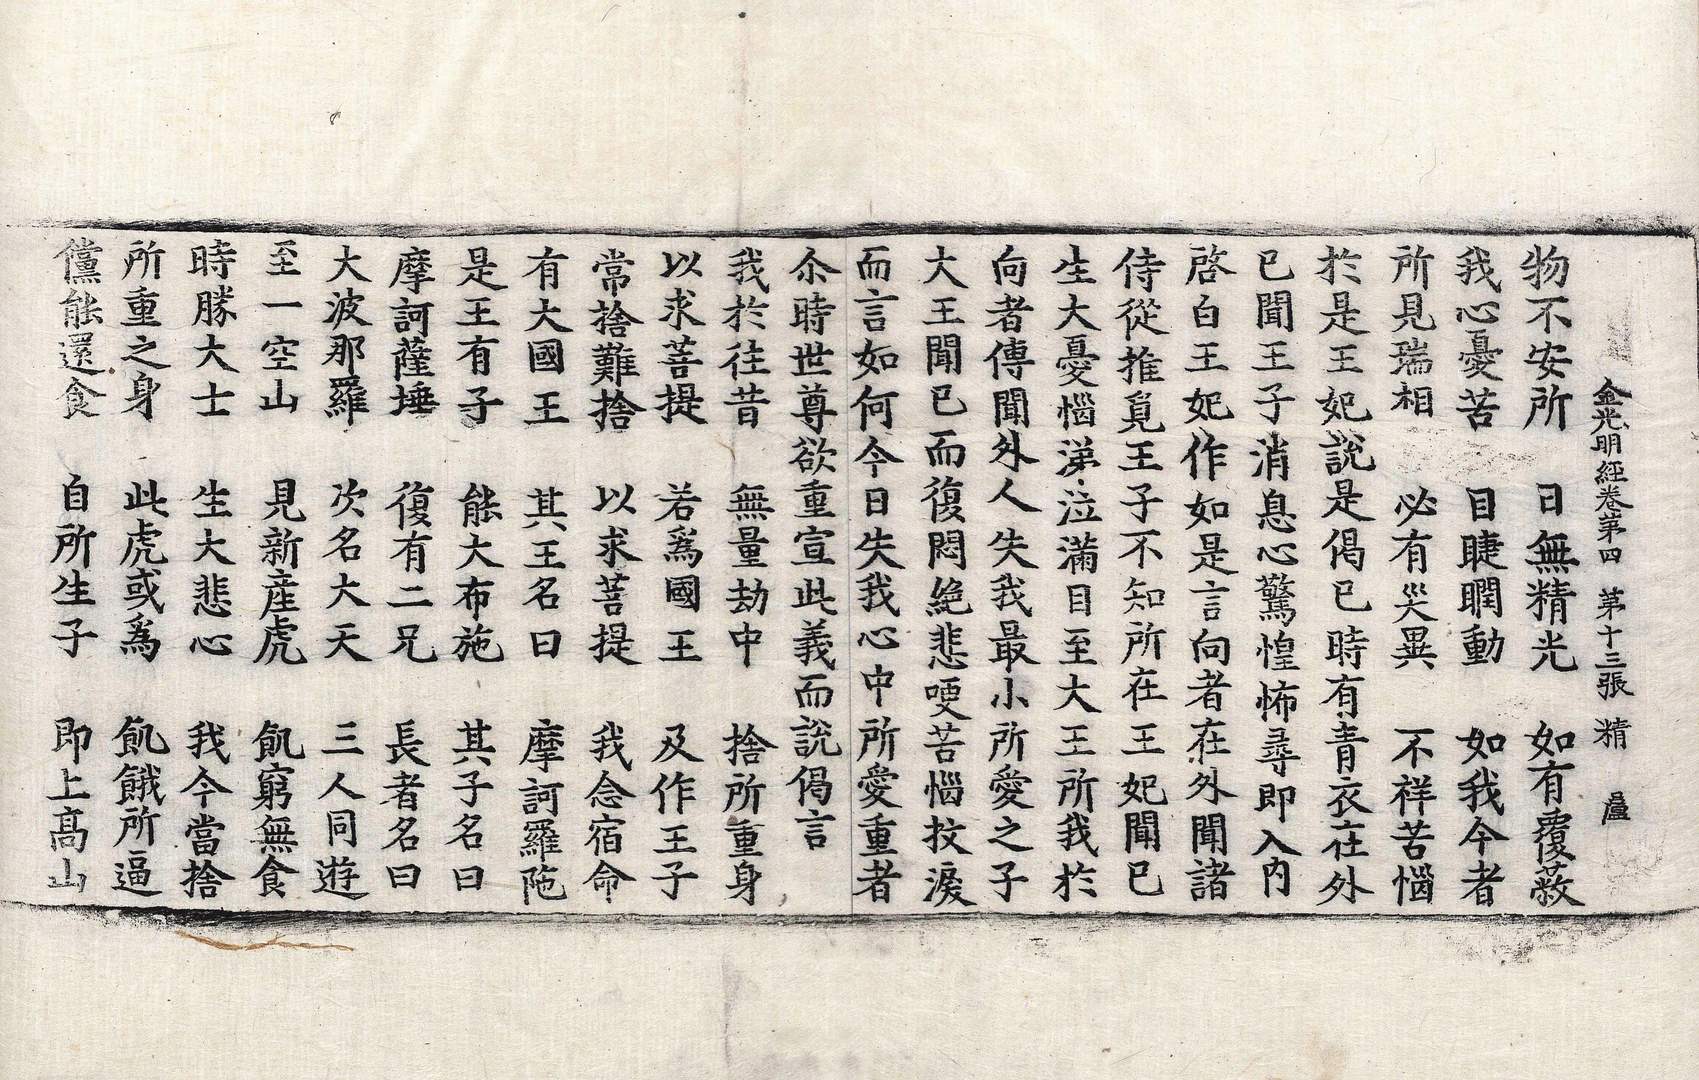 金光明經卷第四　第十三張　精
物不安所　日無精光　如有覆蔽
我心憂苦　目睫瞤動　如我今者
所見瑞相　必有災異　不祥苦惱
於是王妃說是偈已時有青衣在外
已聞王子消息心驚惶怖尋即入內
啓白王妃作如是言向者在外聞諸
侍從推覓王子不知所在王妃聞已
生大憂惱涕泣滿目至大王所我於
向者傳聞外人失我最小所愛之子
大王聞已而復悶絶悲哽苦惱抆淚
而言如何今日失我心中所愛重者
尒時世尊欲重宣此義而說偈言
我於往昔　無量劫中　捨所重身
以求菩提　若爲國王　及作王子
常捨難捨　以求菩提　我念宿命
有大國王　其王名曰　摩訶羅陁
是王有子　能大布施　其子名曰
摩訶薩埵　復有二兄　長者名曰
大波那羅　次名大天　三人同遊
至一空山　見新產虎　飢窮無食
時勝大士　生大悲心　我今當捨
所重之身　此虎或爲　飢餓所逼
儻能還食　自所生子　即上高山